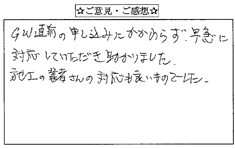 ☆ご意見・ご感想☆
GW直前の申し込みにかかわらず、早急に
対応していただき助かりました。
施工の業者さんの対応も良いものでした。